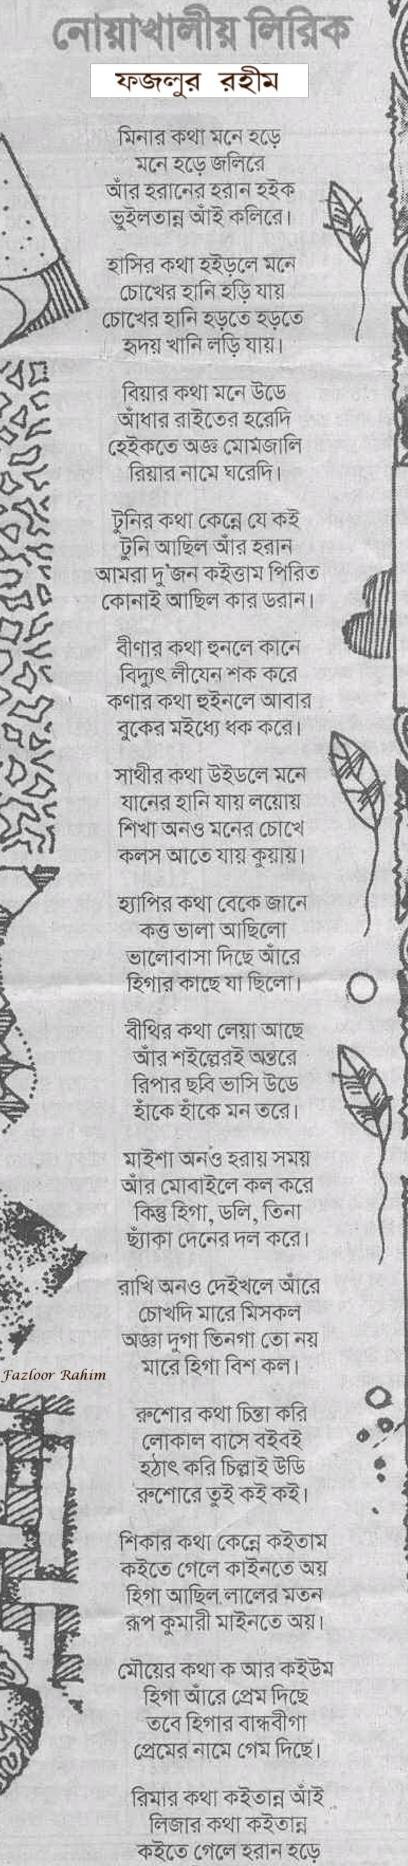 নোয়াখালীয় লিরিক
ফজলুর রহীম
মিনার কথা মনে হড়ে
মনে হড়ে জলিরে
আঁর হরানের হরান হইক
ভূইলতান্ন আঁই কলিরে।
হাসির কথা হইড়লে মনে
চোখের হানি হড়ি যায়
চোখের হানি হড়তে হড়তে
হৃদয় খানি লড়ি যায়।
বিয়ার কথা মনে উডে
আঁধার রাইতের হরেদি
হেইকতে অজ্ঞ মোমজালি
রিয়ার নামে ঘরেদি।
টুনির কথা কেন্নে যে কই
টুনি আছিল আঁর হরান
আমরা দু'জন কইত্তাম পিরিত
কোনাই আছিল কার ডরান।
বীণার কথা হুনলে কানে
বিদ্যুৎ লীযেন শক করে
কণার কথা হুইনলে আবার
বুকের মইধ্যে ধক করে।
সাথীর কথা উইডলে মনে
যানের হানি যায় লয়োয়
শিখা অনও মনের চোখে
কলস আতে যায় কুয়ায়।
হ্যাপির কথা বেকে জানে
কত্ত ভালা আছিলো
ভালোবাসা দিছে আঁরে
হিগার কাছে যা ছিলো।
বীথির কথা লেয়া আছে
আঁর শইল্লেরই অন্তরে
রিপার ছবি ভাসি উডে
হাঁকে হাঁকে মন তরে।
মাইশা অনও হরায় সময়
আঁর মোবাইলে কল করে
কিন্তু হিগা, ডলি, তিনা
ছ্যাঁকা দেনের দল করে।
রাখি অনও দেইখলে আঁরে
চোখদি মারে মিসকল
অজ্ঞা দুগা তিনগা তো নয়
মারে হিগা বিশ কল।
Fazloor Rahim
রুশোর কথা চিন্তা করি
লোকাল বাসে বইবই
হঠাৎ করি চিল্লাই উডি
রুশোরে তুই কই কই।
শিকার কথা কেন্নে কইতাম
কইতে গেলে কাইনতে অয়
হিগা আছিল লালের মতন
রূপ কুমারী মাইনতে অয়।
মৌয়ের কথা ক আর কইউম
হিগা আঁরে প্রেম দিছে
তবে হিগার বান্ধবীগা
প্রেমের নামে গেম দিছে।
রিমার কথা কইতান্ন আঁই
লিজার কথা কইতান্ন
কইতে গেলে হরান হড়ে